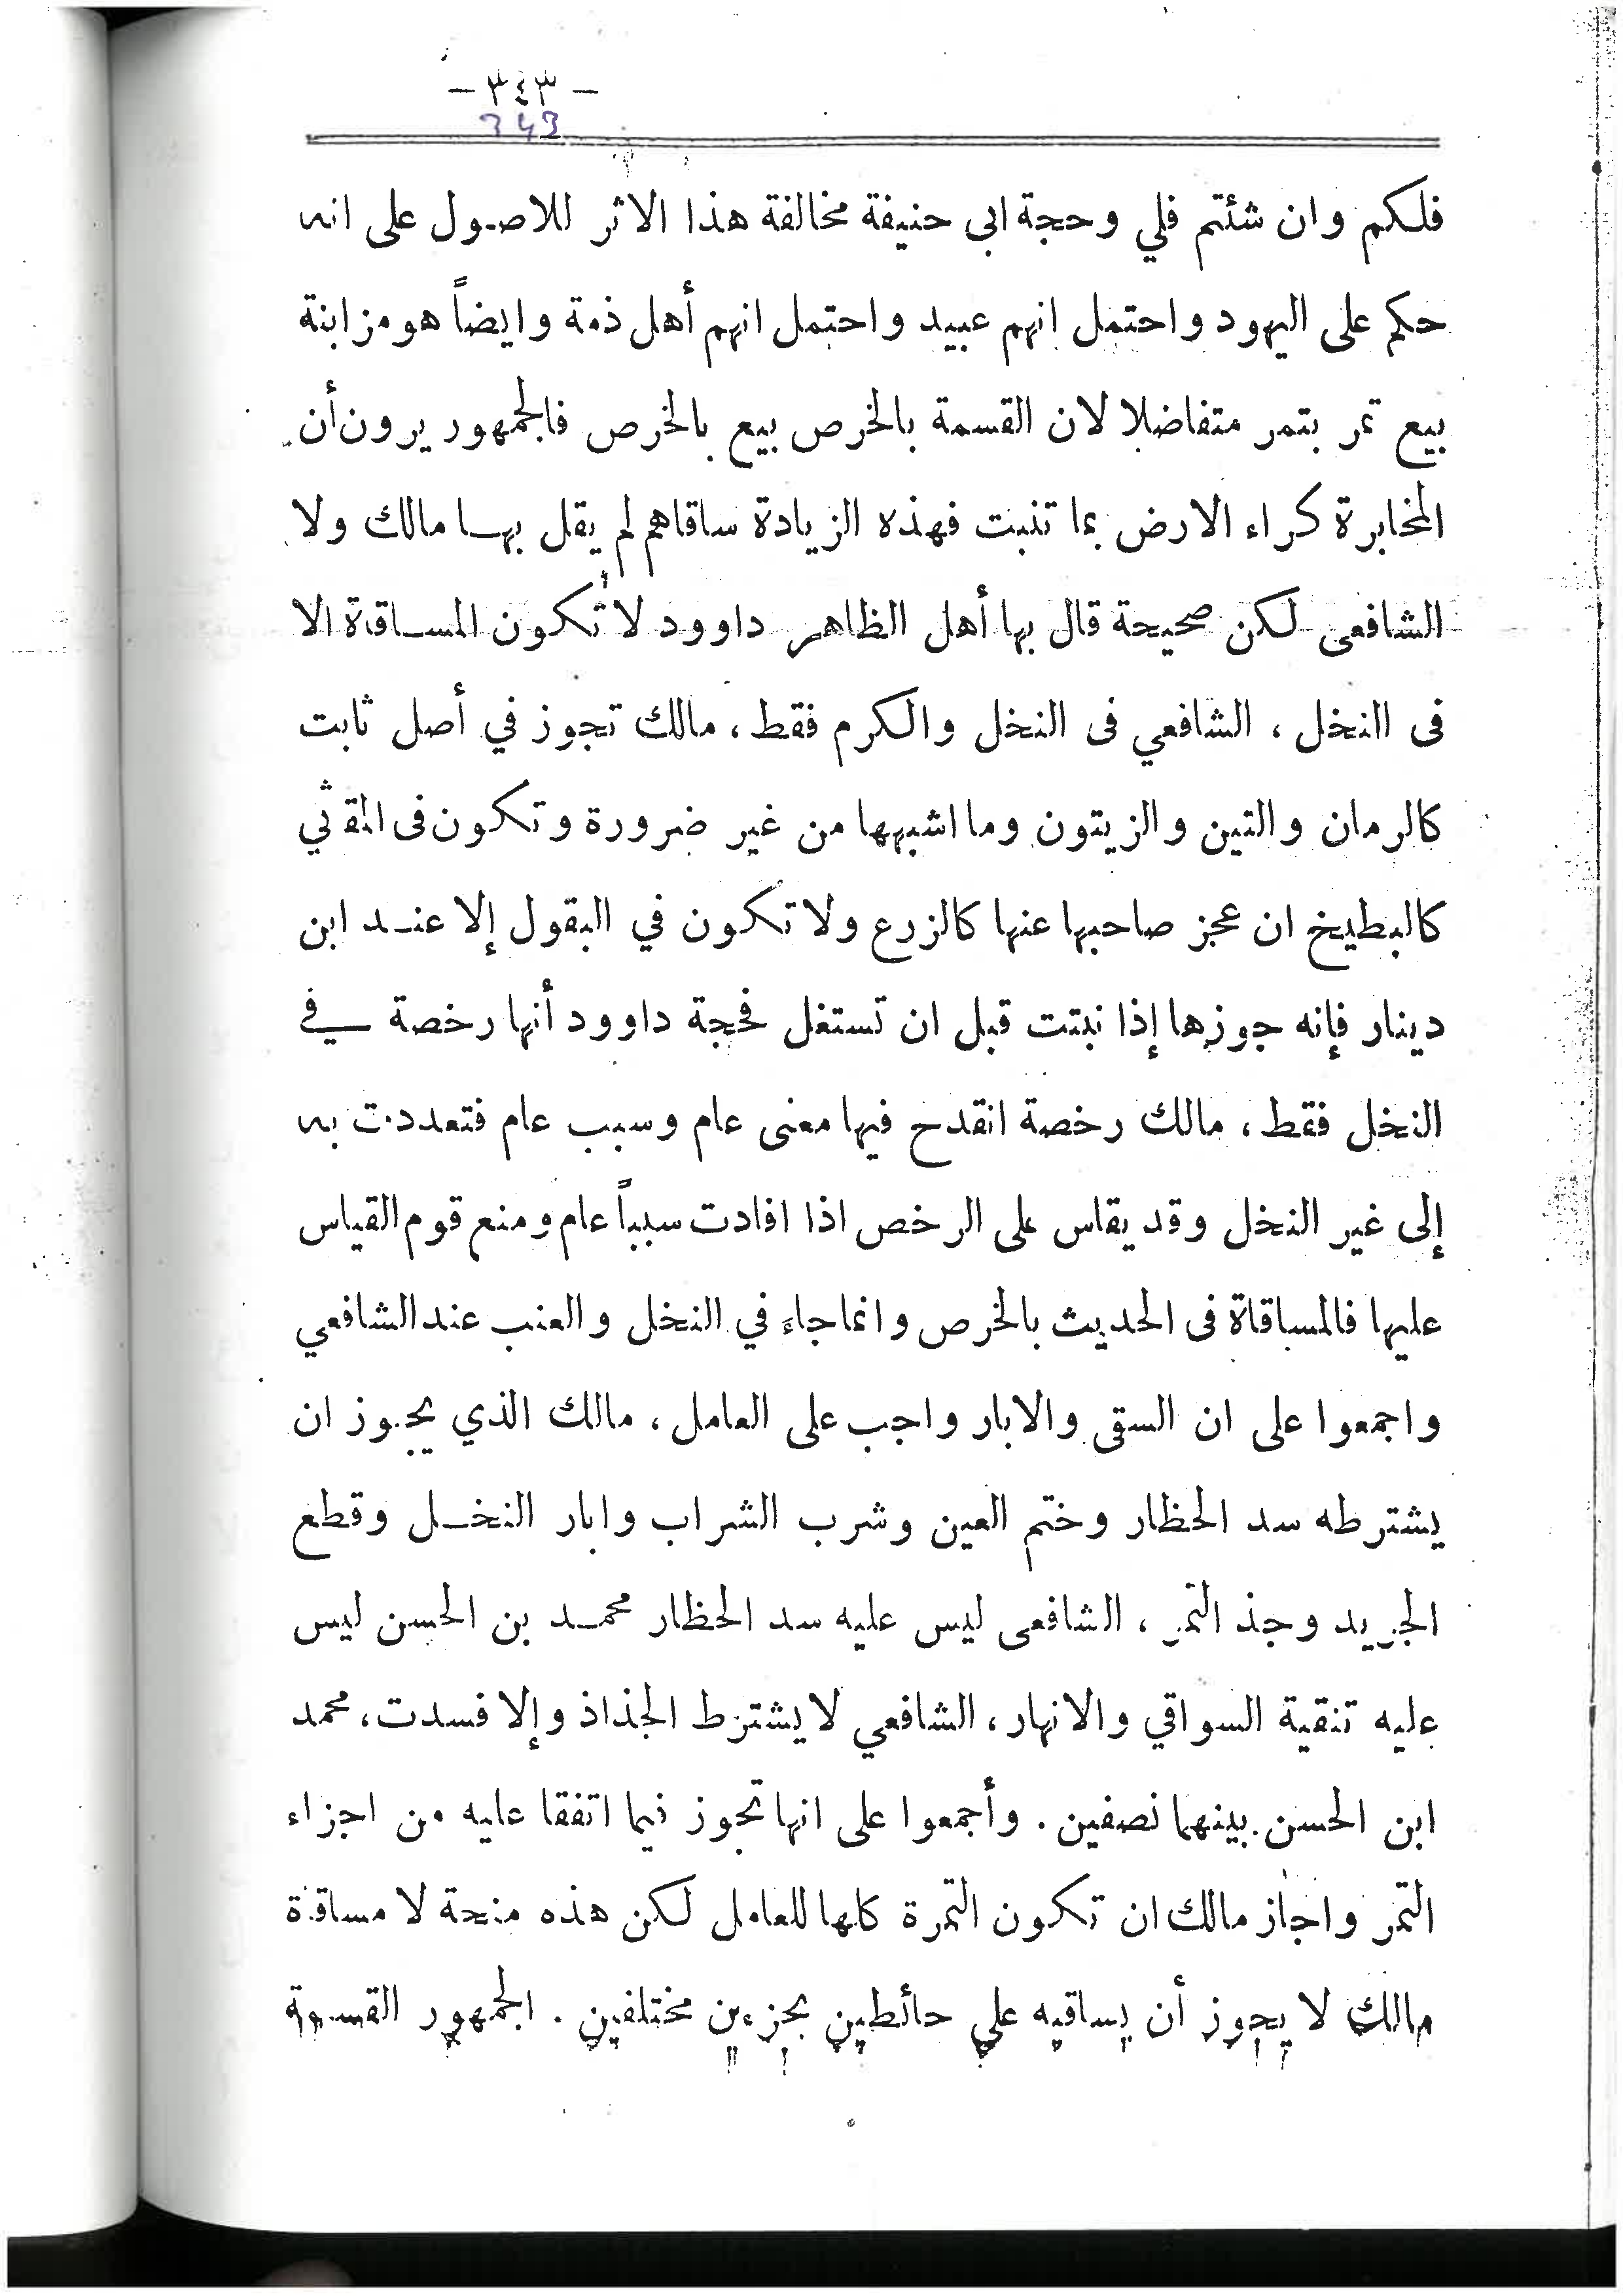 - ٣٤٣ -
343
فلكم وان شئتم فلي وحجة ابى حنيفة مخالفة هذا الاثر للاصول على انه
حكم على اليهود واحتمل انهم عبيد واحتمل انهم أهل ذمة وايضاً هو مزابنة
بيع تمر بتمر متفاضلا لان القسمة بالخرص بيع بالخرص فالجمهور يرون أن
المخابرة كراء الارض بما تنبت فهذه الزيادة ساقاهم لم يقل بها مالك ولا
الشافعى لكن صحيحة قال بها أهل الظاهر داوود لا تكون المساقاة الا
فى النخل ، الشافعي فى النخل والكرم فقط ، مالك تجوز في أصل ثابت
كالرمان والتين والزيتون وما اشبهها من غير ضرورة وتكون فى المقثي
كالبطيخ ان عجز صاحبها عنها كالزرع ولا تكون في البقول إلا عند ابن
دينار فإنه جوزها إذا نبتت قبل ان تستغل فحجة داوود أنها رخصة في
النخل فقط ، مالك رخصة انقدح فيها معنى عام وسبب عام فتعددت به
إلى غير النخل وقد يقاس على الرخص اذا افادت سبباً عام ومنع قوم القياس
عليها فالمساقاة فى الحديث بالخرص وانما جاء في النخل والعنب عند الشافعي
واجمعوا على ان السقى والابار واجب على العامل ، مالك الذي يجوز ان
يشترطه سد الحظار وختم العين وشرب الشراب وابار النخل وقطع
الجريد وجذ التمر ، الشافعى ليس عليه سد الحظار محمد بن الحسن ليس
عليه تنقية السواقي والانهار ، الشافعي لا يشترط الجذاذ وإلا فسدت ، محمد
ابن الحسن بينهما نصفين . وأجمعوا على انها تجوز فيما اتفقا عليه من اجزاء
التمر واجاز مالك ان تكون التمرة كلها للعامل لكن هذه منحة لا مساقاة
مالك لا يجوز أن يساقيه على حائطين بجزءين مختلفين . الجمهور القسمة